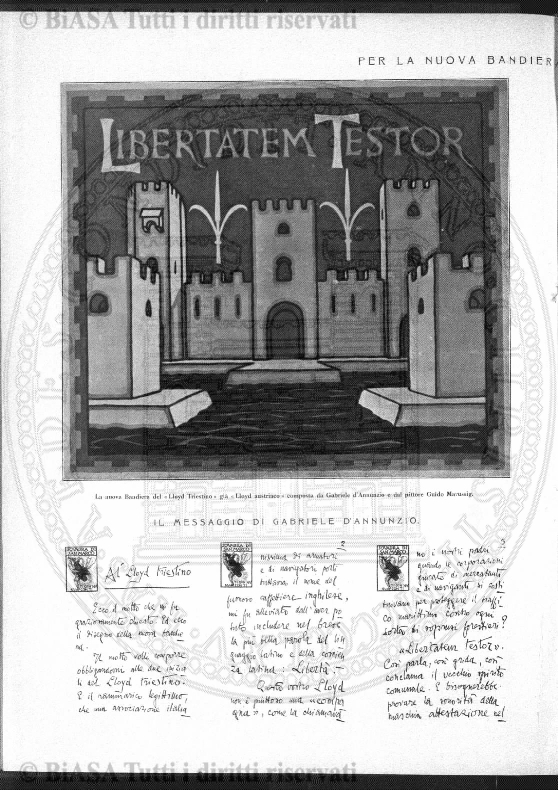 © BiASA Tutti i diritti riservati
PER LA NUOVA BANDIER
LIBERTATEM TESTOR
La nuova Bandiera del «Lloyd Triestino» già «Lloyd austriaco» composta da Gabriele d'Annunzio e dal pittore Guido Marussig.
IL MESSAGGIO DI GABRIELE D'ANNUNZIO.
Al Lloyd triestino
Ecco il motto che mi fu
graziosamente chiesto. Ed ecco
il disegno della nuova bandie
ra.
Il motto volle comporre
obbligazioni alle due inizia
li del Lloyd Triestino.
E il rammarico legittimo,
che una associazione italia
2
nissima di armatori
e di navigatori porti
tuttavia il nome del
fumoso caffettiere inghilese,
mi fu alleviato dall'aver po
tuto includere nel breve
la più bella parola del lin
guaggio latino e della coscien
za latina: Libertà. –
Questo vostro Lloyd
non è piuttosto una
qua», come la chiamavan
3
no i nostri padri
quando le corporazioni
di mercatanti
e di naviganti si costi
tuivano per proteggere il traffi
co marittimo contro ogni
sorta di soprusi forestieri?
«Libertatem Testor».
Così parla, così grida, così
conclama il vecchio spirito
comunale. E bisognerebbe
provare la sonorità della
maschia attestazione nel
© BiASA Tutti i diritti riservati